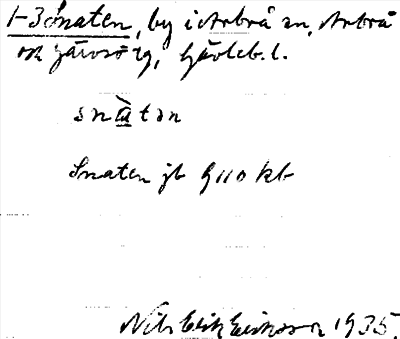 1-3 Snaten, by i Arbrå sn, Arbrå
och Järvsö tg, Gävleb. l.
snàtən
Snaten jb G110 kb
Nils Erik Eriksson 1935.